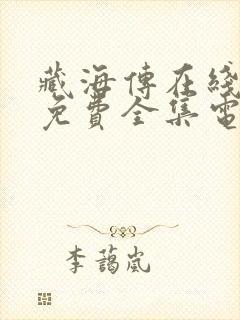 藏海傳在綫
免費全集電
李藹嵐